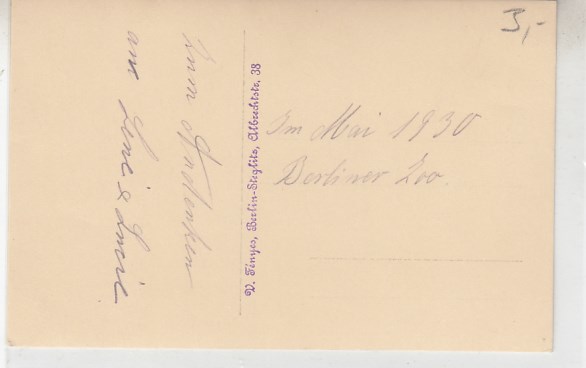 3,-
Zum Andenken
am Leni &
V. Tinyes, Berlin-Steglitz, Albrechtstr. 38
Im Mai 1930
Berliner Zoo.